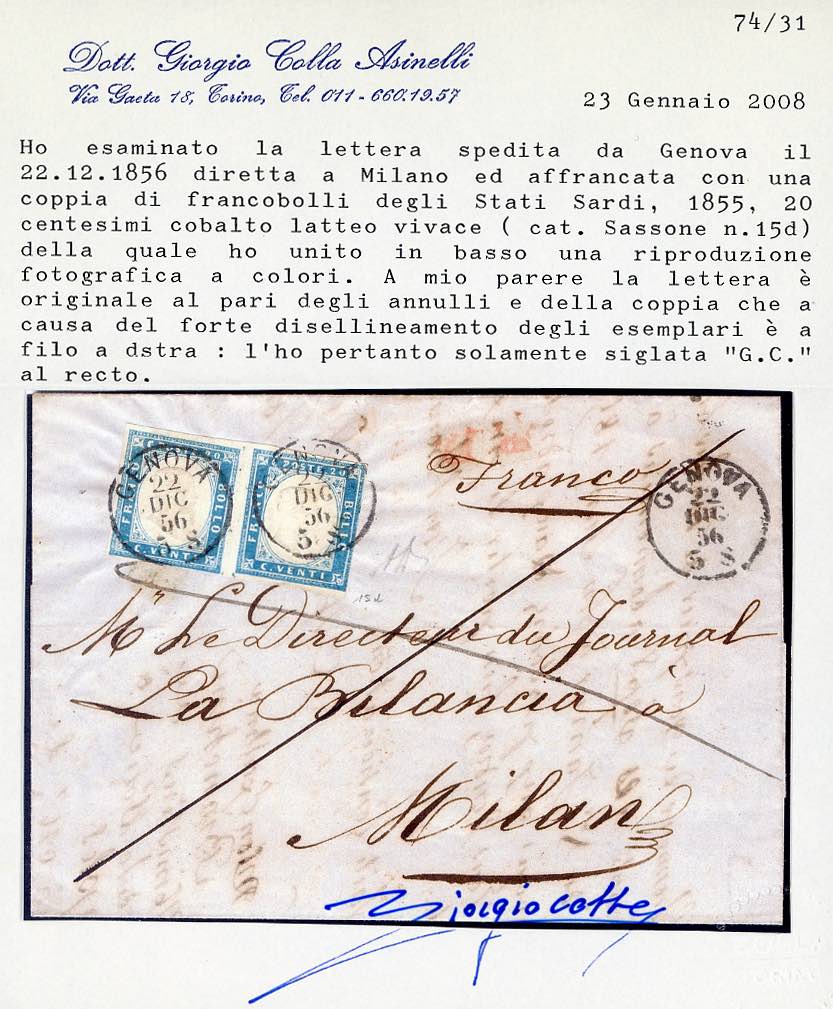 74/31
Dott. Giorgio Colla Asinelli
Via Gaeta 18, Torino, Tel. 011-660.19.57
23 Gennaio 2008
Ho esaminato la lettera spedita da Genova il
22.12.1856 diretta a Milano ed affrancata con una
coppia di francobolli degli Stati Sardi, 1855, 20
centesimi cobalto latteo vivace ( cat. Sassone n.15d)
della quale ho unito in basso una riproduzione
fotografica a colori. A mio parere la lettera è
originale al pari degli annulli e della coppia che a
causa del forte disellineamento degli esemplari è a
filo a dstra : l'ho pertanto solamente siglata "G.C."
al recto.
GENOVA
22
DIC
56
5 S
C. VENTI
BOLLO
GENOVA
22
DIC
56
5 S
POSTE 20
BOLLO
C. VENTI
Franco
GENOVA
22
DIC
56
5 S
15d
Mr Le Directeur du Journal
La Bilancia à
Milan
Giorgio Colla